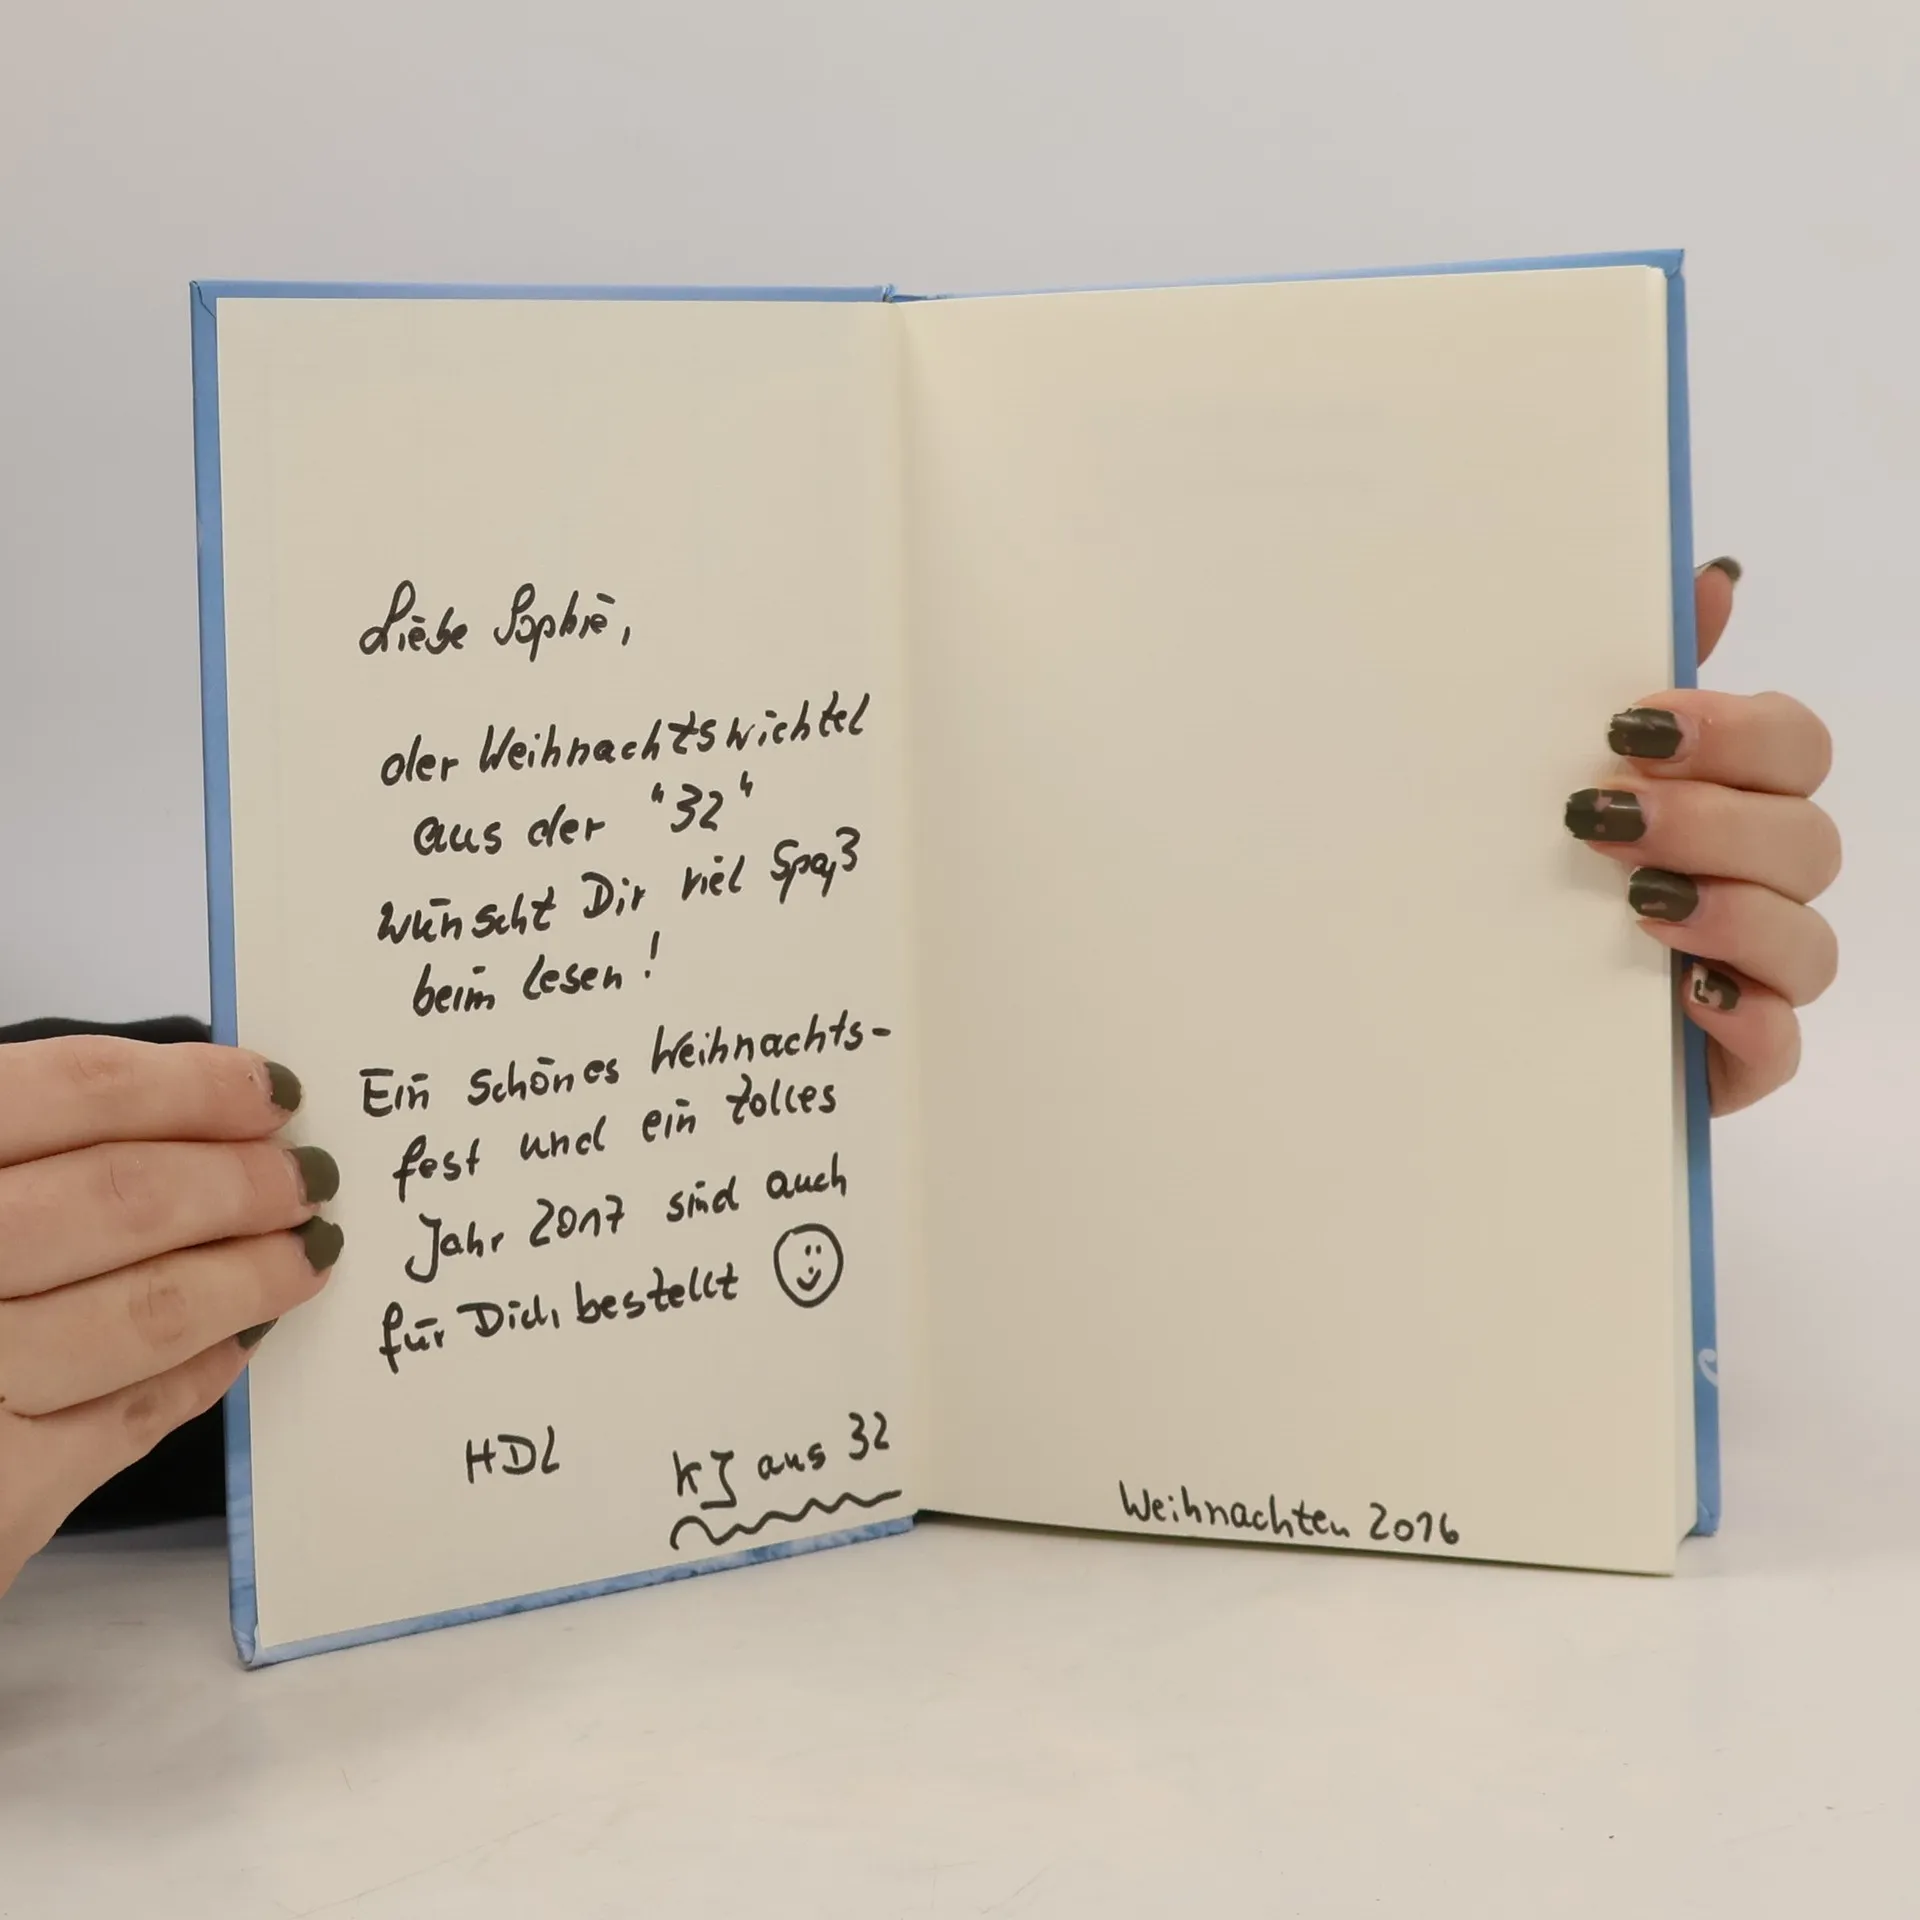 Liebe Sophie,
der Weihnachtswichtel
aus der "32"
wünscht Dir viel Spaß
beim Lesen!
Ein schönes Weihnachts-
fest und ein tolles
Jahr 2017 sind auch
für Dich bestellt
HDL
KJ aus 32
Weihnachten 2016